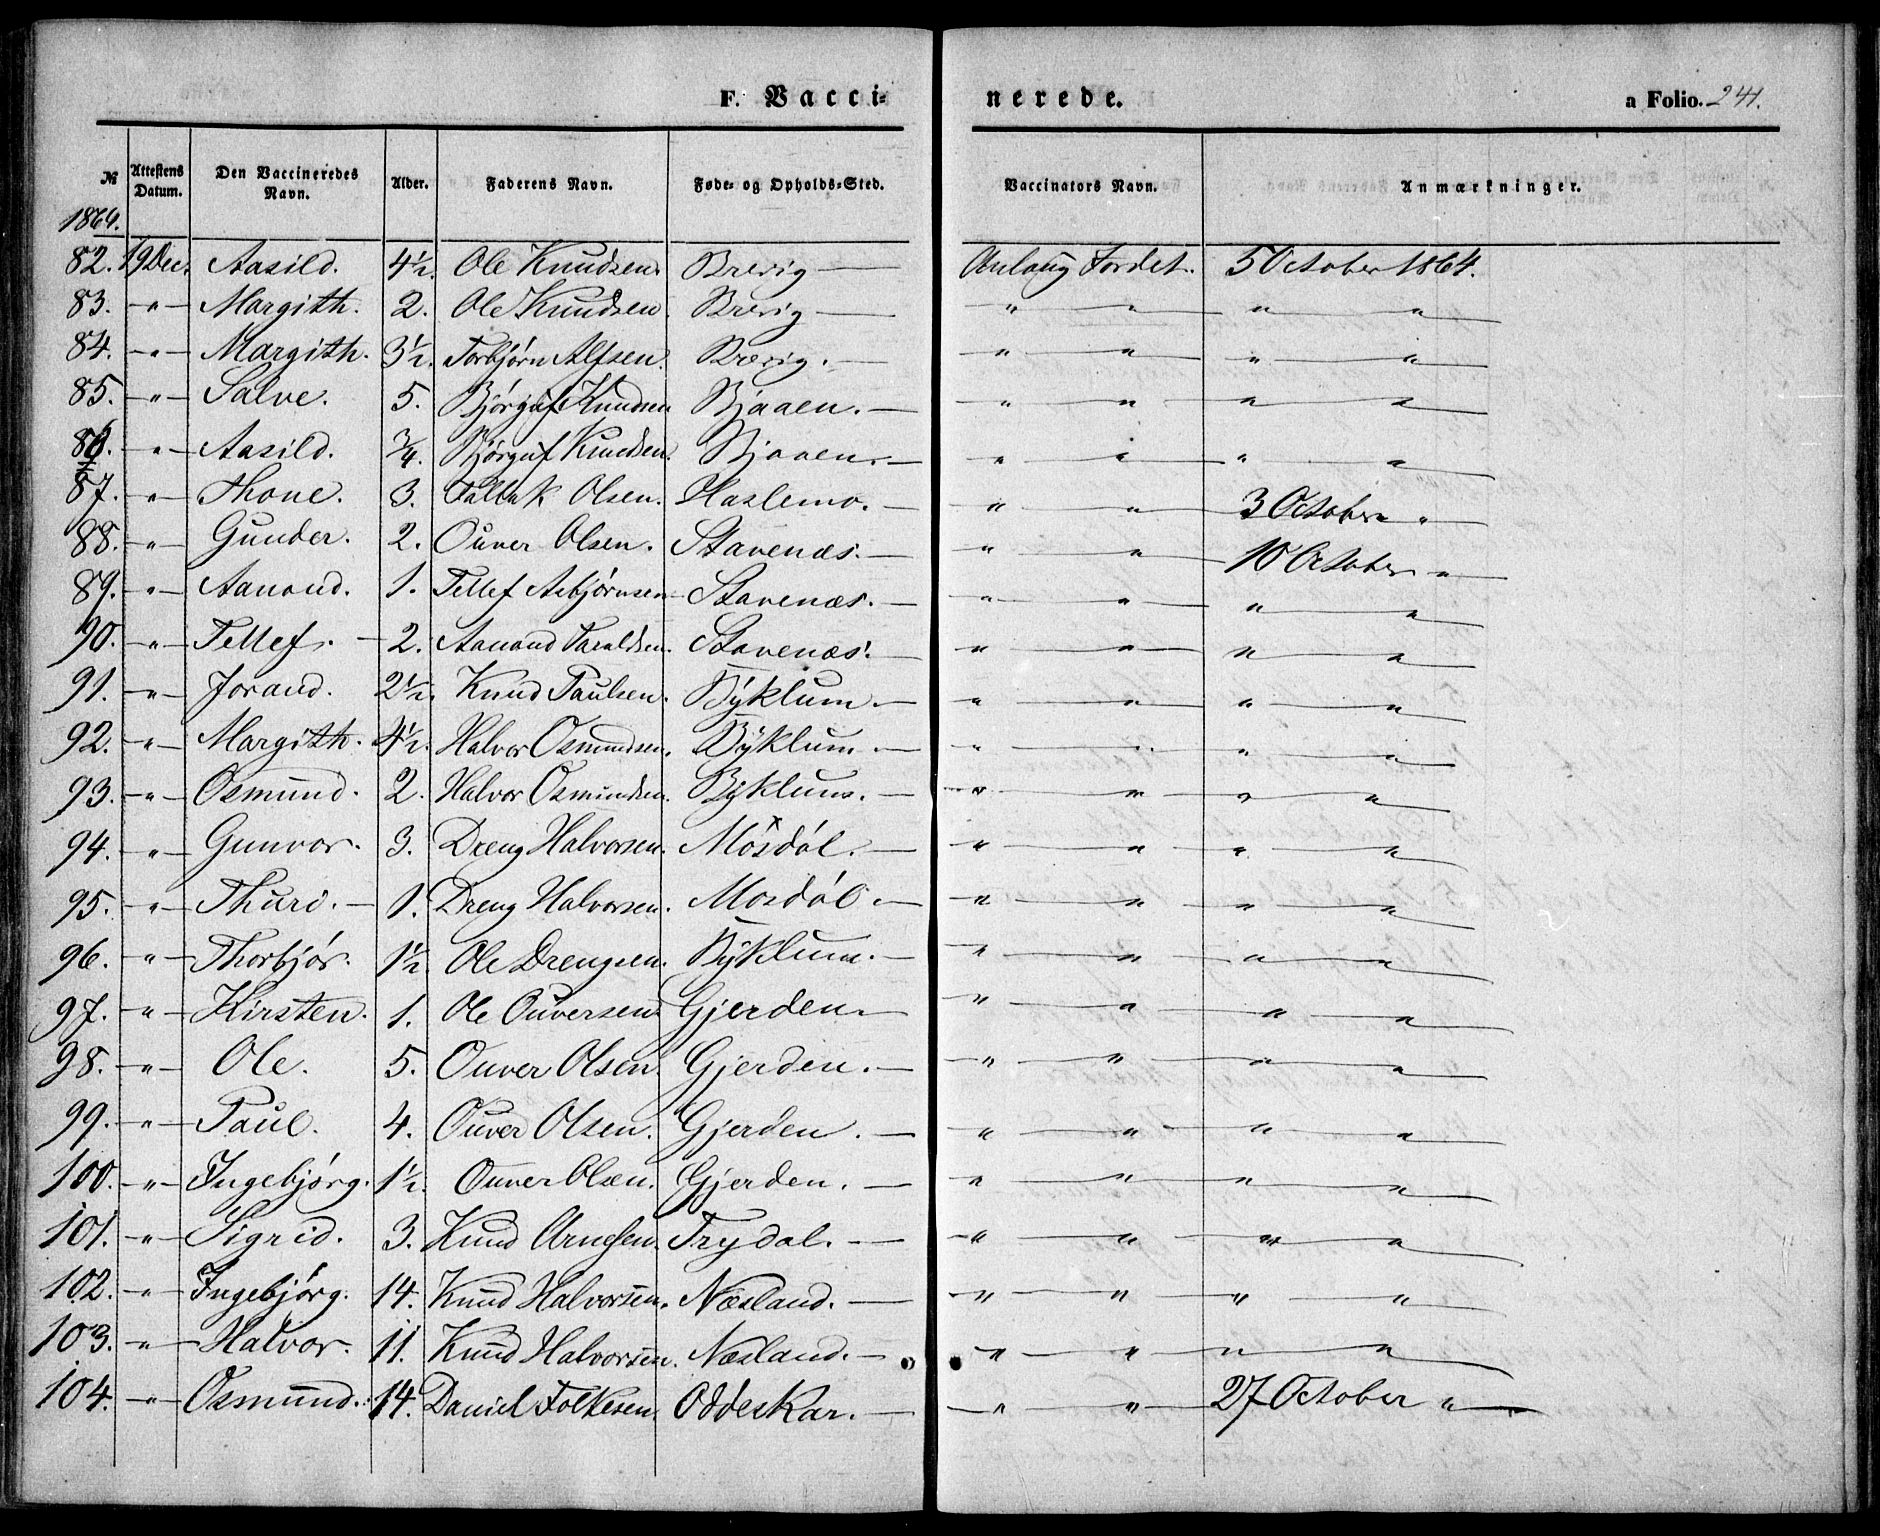 F. Vacci- nerede. a Folio. 241.
№ Attestens Datum. Den Vaccineredes Navn. Alder. Faderens Navn. Føde- og Opholds-Sted. Vaccinators Navn. Anmærkninger.
1864.
82. 19 Dec. Aasild. 4½. Ole Knudsen. Brevig — 5 October 1864.
83. — " — Margith. 2. Ole Knudsen. Brevig — " " " "
84. — " — Margith. 3½. Torbjørn Alfsen. Brevig. — " " " "
85. — " — Salve. 5. Bjørguf Knudsen Bjaaen. — " " " "
86. — " — Aasild. ¾. Bjørguf Knudsen. Bjaaen. — " " " "
87. — " — Thone. 3. Tallak Olsen. Haslemo. — " " 3 October "
88. — " — Gunder. 2. Ouver Olsen. Stavenæs. — " " 10 October "
89. — " — Aanond. 1. Tellef Asbjørnsen Stavenæs. — " " " "
90. — " — Tellef. — 2. Aanond Taraldsen. Stavenæs. — " " " "
91. — " — Jorand. 2½. Knud Paulsen. Bÿklum. — " " " "
92. — " — Margith. 4½. Halvor Osmundsen. Bÿklum. — " " " "
93. — " — Osmund. 2. Halvor Osmundsen. Bÿklum. — " " " "
94. — " — Gunvor. 3. Dreng Halvorsen. Mosdøl. — " " " "
95. — " — Thuri. — 1. Dreng Halvorsen. Mosdøl. — " " " "
96. — " — Thorbjør. 1½ Ole Drengsen. Bÿklum. — " " " "
97. — " — Kirsten. 1. Ole Ouversen Gjerden. — " " " "
98. — " — Ole. 5. Ouver Olsen Gjerden. — " " " "
99. — " — Paul. 4. Ouver Olsen. Gjerden. — " " " "
100. — " — Ingebjørg. 1½. Ouver Olsen. Gjerden. — " " " "
101. — " — Sigrid. 3. Knud Arnesen. Trydal. — " " " "
102. — " — Ingebjørg. 14. Knud Halvorsen. Næsland. — " " " "
103. — " — Halvor. 11. Knud Halvorsen. Næsland. — " " " "
104. — " — Osmund. 14. Daniel Folkesen. Oddeskar. — " " 27 October "